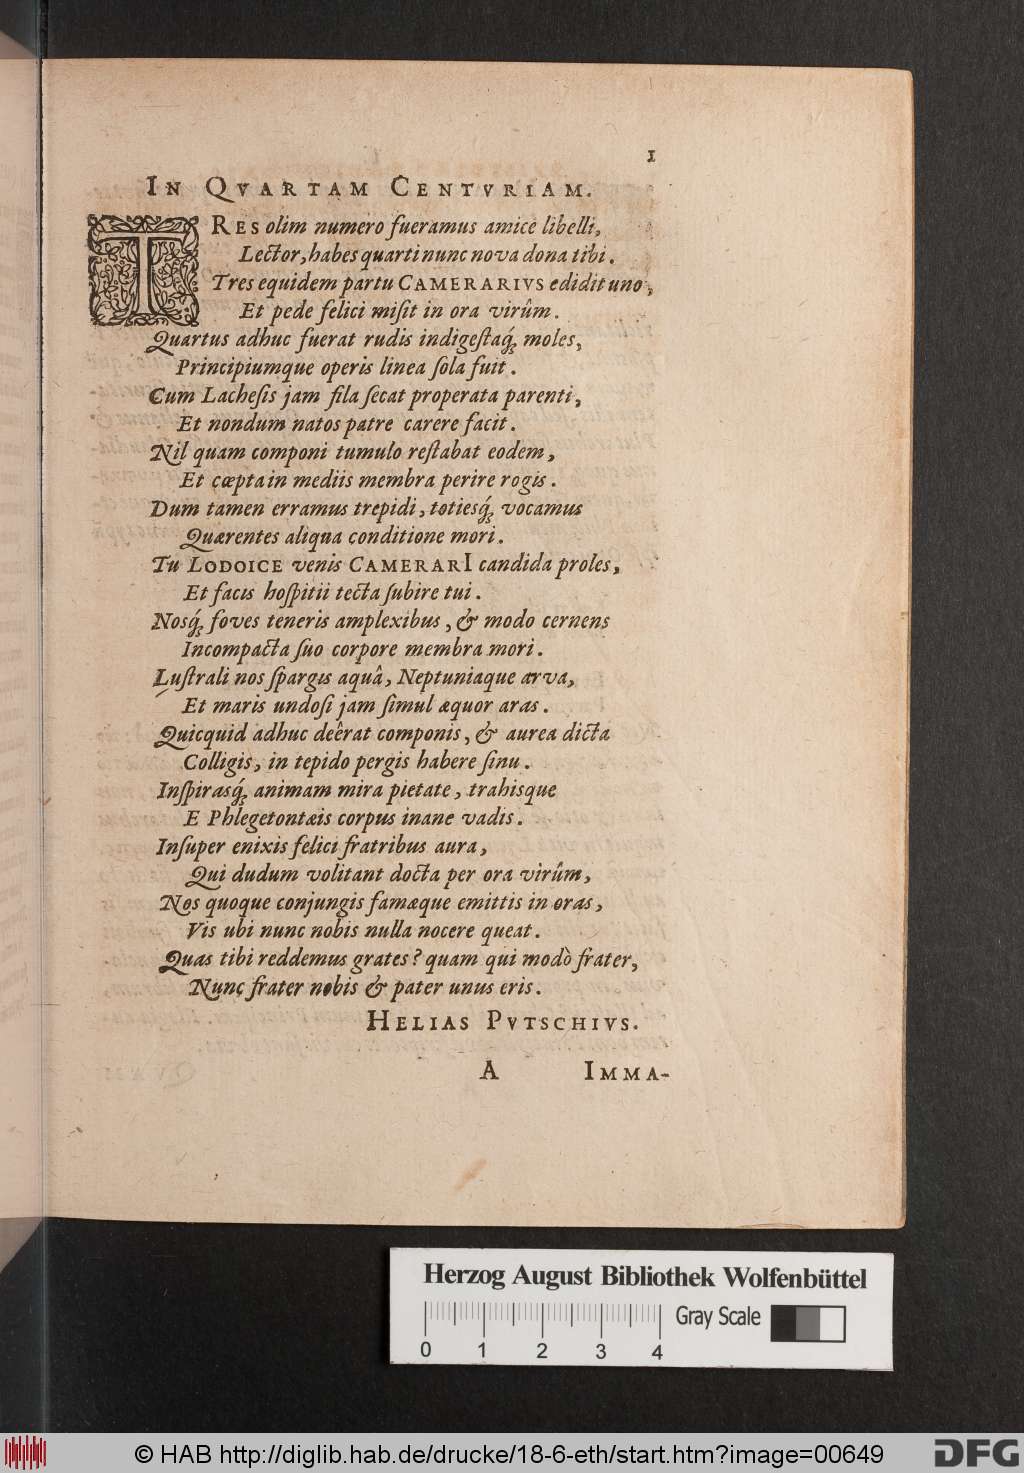 1
IN QVARTAM CENTVRIAM.
TRES olim numero fueramus amice libelli,
Lector, habes quarti nunc nova dona tibi.
Tres equidem partu CAMERARIVS edidit uno,
Et pede felici miſit in ora virûm.
Quartus adhuc fuerat rudis indigeſtaq́; moles,
Principiumque operis linea ſola fuit.
Cum Lacheſis jam fila ſecat properata parenti,
Et nondum natos patre carere facit.
Nil quam componi tumulo reſtabat eodem,
Et cœpta in mediis membra perire rogis.
Dum tamen erramus trepidi, totiesq́; vocamus
Quærentes aliqua conditione mori.
Tu LODOICE venis CAMERARI candida proles,
Et facis hoſpitii tecta ſubire tui.
Nosq́; foves teneris amplexibus, & modo cernens
Incompacta ſuo corpore membra mori.
Luſtrali nos ſpargis aquâ, Neptuniaque arva,
Et maris undoſi jam ſimul æquor aras.
Quicquid adhuc deêrat componis, & aurea dicta
Colligis, in tepido pergis habere ſinu.
Inſpirasq́; animam mira pietate, trahisque
E Phlegetontæis corpus inane vadis.
Inſuper enixis felici fratribus aura,
Qui dudum volitant docta per ora virûm,
Nos quoque conjungis famæque emittis in oras,
Vis ubi nunc nobis nulla nocere queat.
Quas tibi reddemus grates? quam qui modò frater,
Nunc frater nobis & pater unus eris.
HELIAS PVTSCHIVS.
A IMMA-
Herzog August Bibliothek Wolfenbüttel
Gray Scale
0 1 2 3 4
© HAB http://diglib.hab.de/drucke/18-6-eth/start.htm?image=00649
DFG